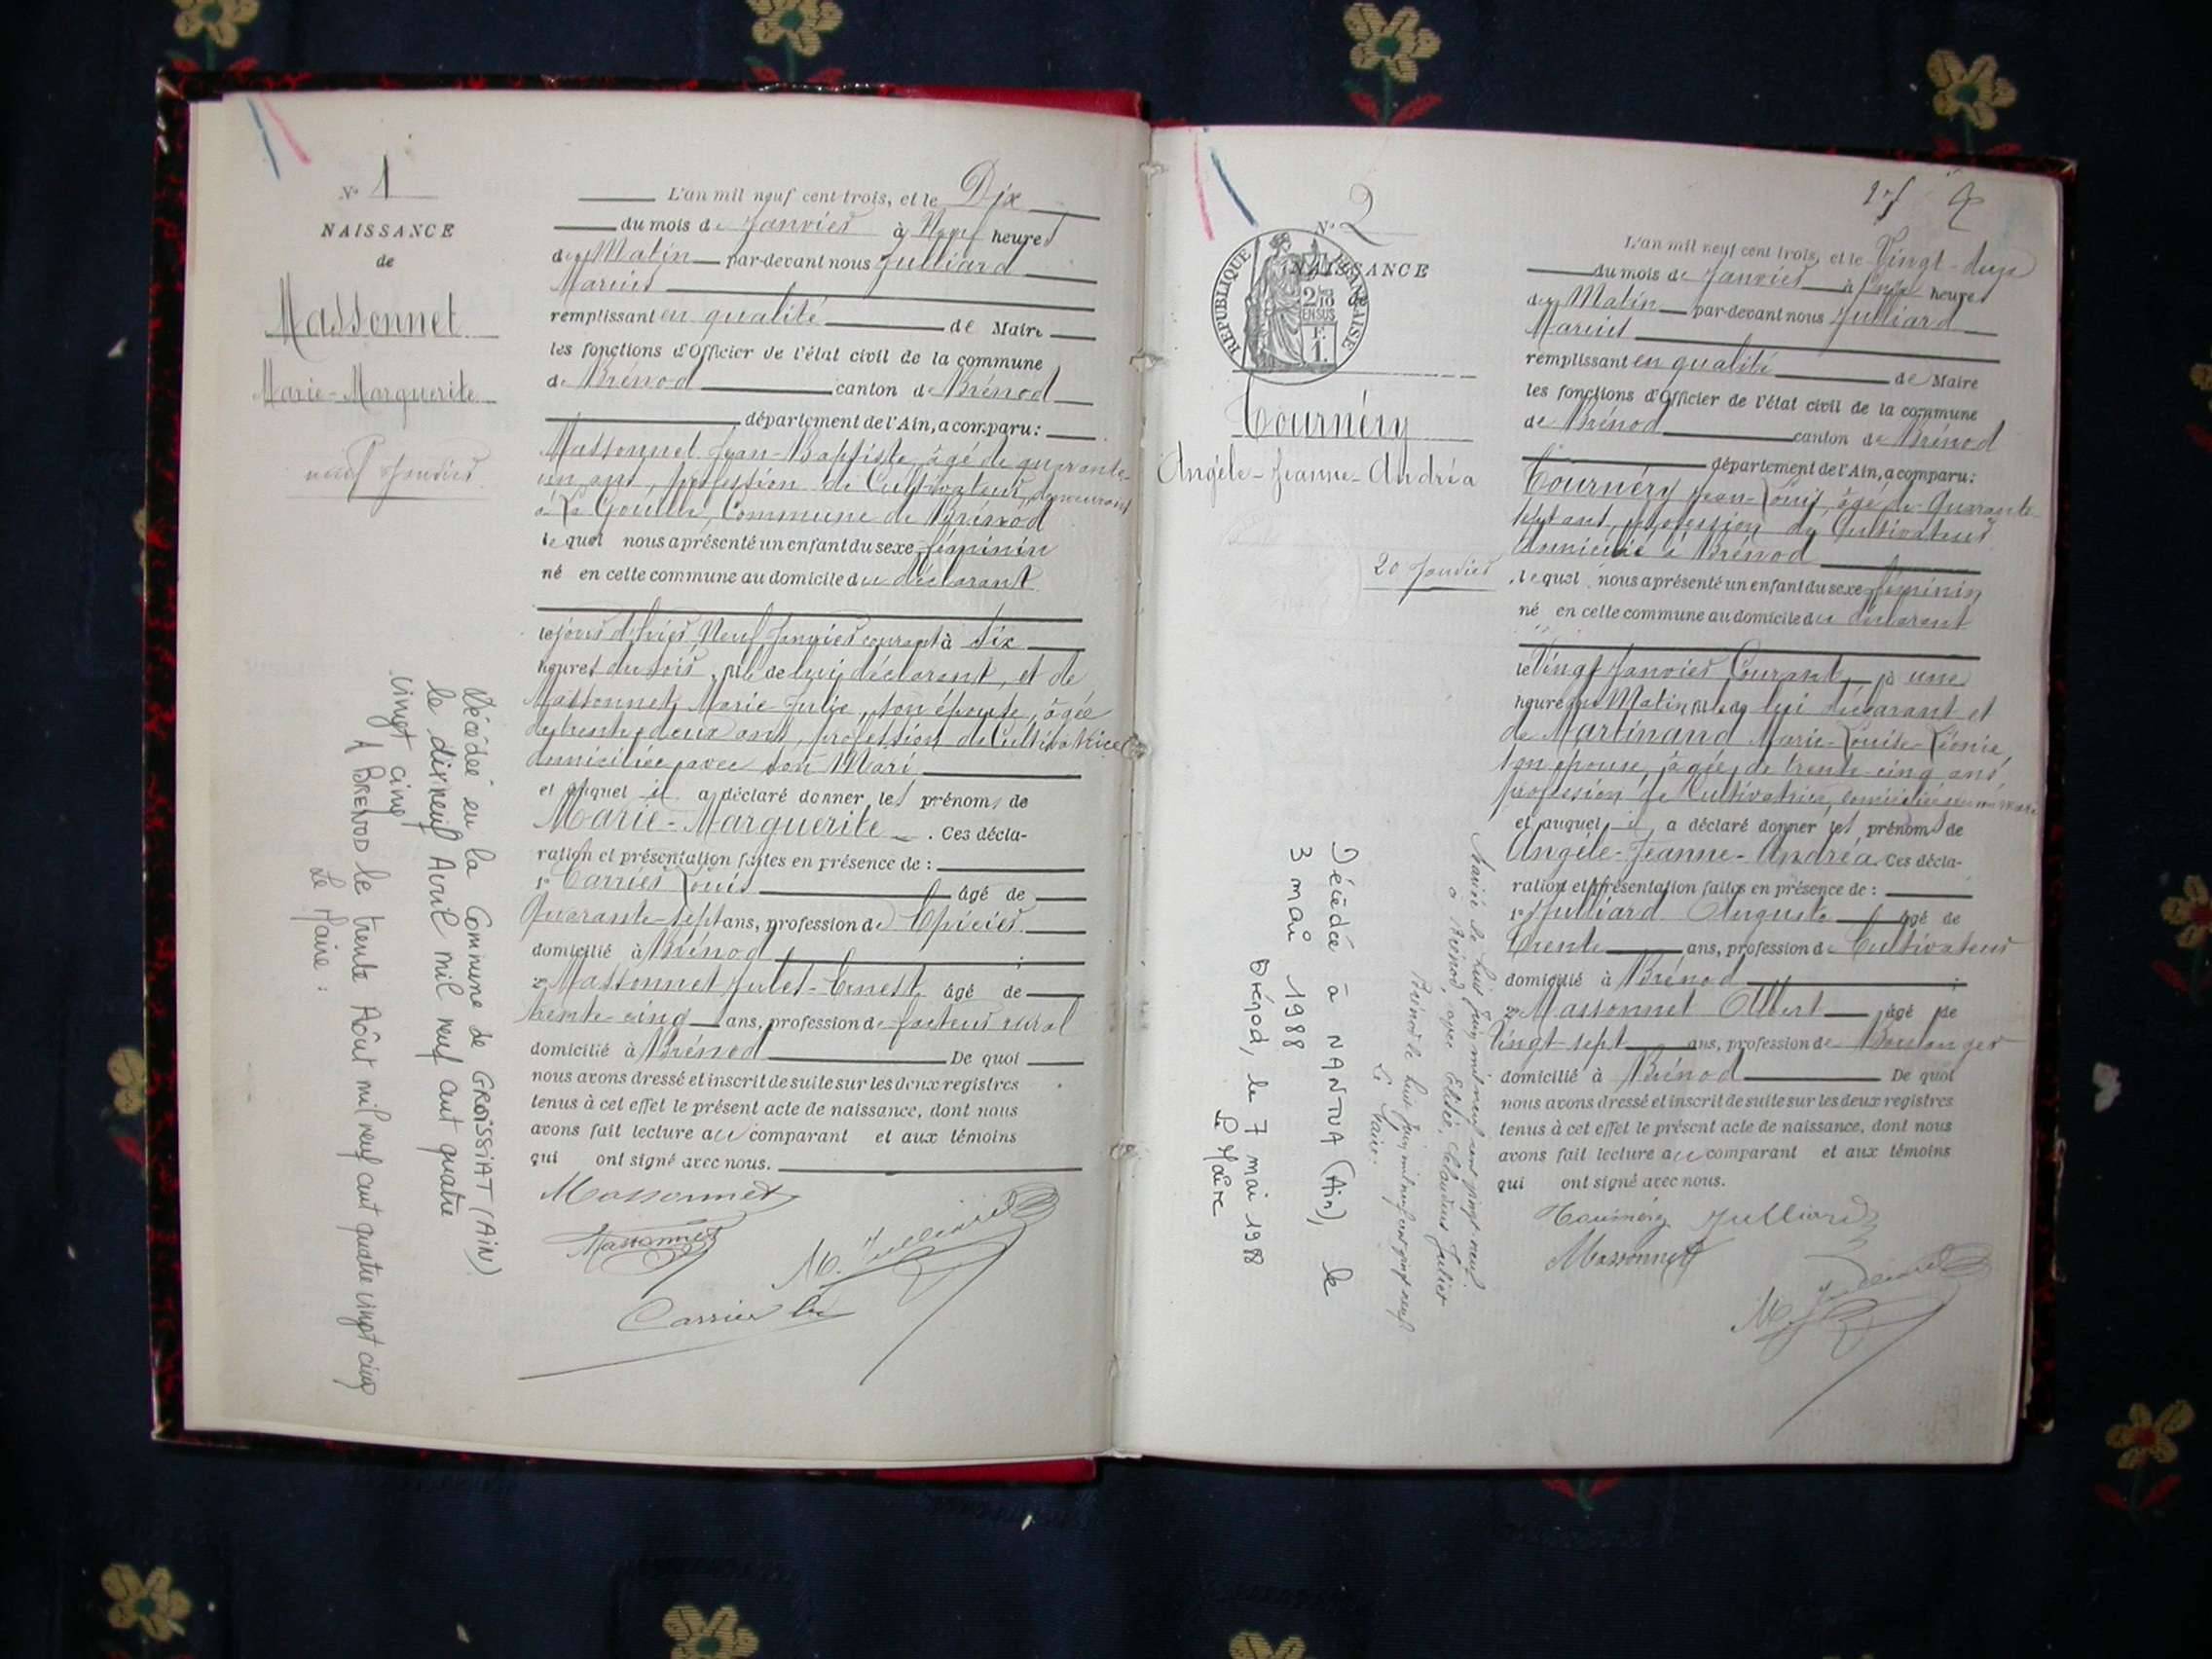 N° 1
NAISSANCE
de
Massonnet
Marie-Marguerite
neuf Janvier
L'an mil neuf cent trois, et le Dix
du mois de Janvier à Neuf heures
du Matin par-devant nous Julliard
Marius
remplissant en qualité de Maire
les fonctions d'Officier de l'état civil de la commune
de Brénod canton de Brénod
département de l'Ain, a comparu :
Massonnet Jean-Baptiste, âgé de quarante-
un ans, profession de Cultivateur, demeurant
à La Commune de Brénod
lequel nous a présenté un enfant du sexe féminin
né en cette commune au domicile du déclarant
le jour d'hier Neuf Janvier courant à Six
heures du soir, né de lui déclarant, et de
Massonnet Marie-Julie, son épouse, âgée
de trente-deux ans, profession de Cultivatrice
domiciliée avec son Mari
et auquel il a déclaré donner les prénoms de
Marie-Marguerite. Ces décla-
ration et présentation faites en présence de :
1° Carrier Louis âgé de
Quarante-sept ans, profession de Epicier
domicilié à Brénod ;
2° Massonnet Jules-Ernest âgé de
trente cinq ans, profession de facteur rural
domicilié à Brénod De quoi
nous avons dressé et inscrit de suite sur les deux registres
tenus à cet effet le présent acte de naissance, dont nous
avons fait lecture au comparant et aux témoins
qui ont signé avec nous.
Massonnet
Massonnet
M. Julliard
Carrier
Décédée en la Commune de GROISSIAT (AIN)
le dixneuf Avril mil neuf cent quatre
vingt cinq
A BRENOD le trente Août mil neuf cent quatre vingt cinq
Le Maire :
2
N° 2
NAISSANCE
de
REPUBLIQUE FRANCAISE
2/10
EN SUS
F.
1.
Tournéry
Angèle-Jeanne-Andréa
20 Janvier
L'an mil neuf cent trois, et le Vingt-deux
du mois de Janvier à heures
du Matin par-devant nous Julliard
Marius
remplissant en qualité de Maire
les fonctions d'Officier de l'état civil de la commune
de Brénod canton de Brénod
département de l'Ain, a comparu :
Tournéry Jean-Louis, âgé de Quarante
sept ans, profession de Cultivateur
domicilié à Brénod
lequel nous a présenté un enfant du sexe féminin
né en cette commune au domicile du déclarant
le Vingt Janvier Courant à une
heure du Matin, né de lui déclarant et
de Martinand Marie-Louise-Léonie,
son épouse, âgée de trente-cinq ans,
profession de Cultivatrice, domiciliée avec son mari
et auquel il a déclaré donner les prénoms de
Angèle-Jeanne-Andréa. Ces décla-
ration et présentation faites en présence de :
1° Julliard Auguste âgé de
Trente ans, profession de Cultivateur
domicilié à Brénod ;
2° Massonnet Albert âgé de
Vingt-sept ans, profession de Boulanger
domicilié à Brénod De quoi
nous avons dressé et inscrit de suite sur les deux registres
tenus à cet effet le présent acte de naissance, dont nous
avons fait lecture au comparant et aux témoins
qui ont signé avec nous.
Tournéry Julliard
Massonnet
M. Julliard
Mariée le huit Juin mil neuf cent vingt-neuf
à Brénod, avec Elisée, Claudius Julier
Brénod le huit Juin mil neuf cent vingt neuf
Le Maire :
Décédée à NANTUA (Ain), le
3 mai 1988
Brénod, le 7 mai 1988
Le Maire